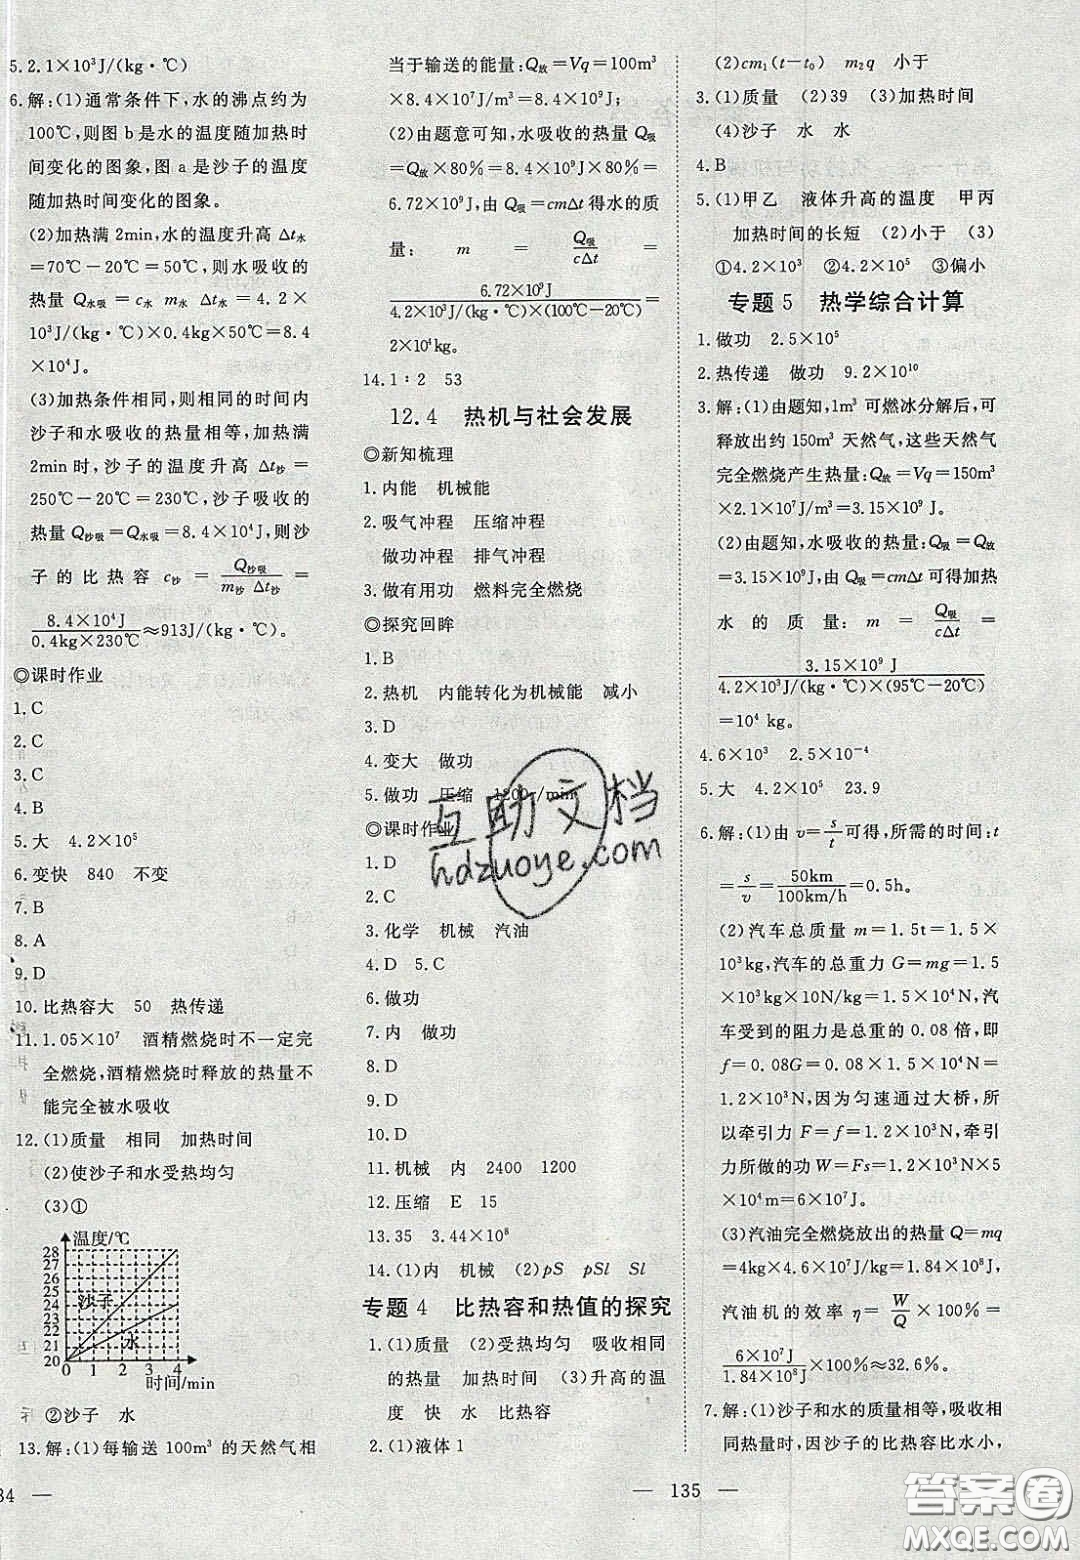 5. 2.1×10³J/(kg·℃)
6. 解:(1)通常条件下,水的沸点约为
100℃,则图 b 是水的温度随加热时
间变化的图象,图 a 是沙子的温度
随加热时间变化的图象。
(2)加热满 2min,水的温度升高 Δt水
=70℃-20℃=50℃,则水吸收的
热量 Q水吸 = c水 m水 Δt水 = 4.2×
10³J/(kg·℃)×0.4kg×50℃=8.4
×10⁴J。
(3)加热条件相同,则相同的时间内
沙子和水吸收的热量相等,加热满
2min 时,沙子的温度升高 Δt沙=
250℃-20℃=230℃,沙子吸收的
热量 Q沙吸=Q水吸=8.4×10⁴J,则沙
子的比热容 c沙 = Q沙吸/(m沙 Δt沙) =
8.4×10⁴J/(0.4kg×230℃)≈913J/(kg·℃)。
◎课时作业
1. C
2. C
3. C
4. B
5. 大 4.2×10⁵
6. 变快 840 不变
7. B
8. A
9. D
10. 比热容大 50 热传递
11. 1.05×10⁷ 酒精燃烧时不一定完
全燃烧,酒精燃烧时释放的热量不
能完全被水吸收
12. (1)质量 相同 加热时间
(2)使沙子和水受热均匀
(3)①
温度/℃
28
27
26
25
24
23
22
21
20
沙子
水
0 1 2 3 4
时间/min
②沙子 水
13. 解:(1)每输送 100m³ 的天然气相
34 —
当于输送的能量:Q放=Vq=100m³
×8.4×10⁷J/m³=8.4×10⁹J。
(2)由题意可知,水吸收的热量 Q吸
=Q放×80%=8.4×10⁹J×80%=
6.72×10⁹J,由 Q吸=cmΔt 得水的质
量: m = Q吸/(cΔt) =
6.72×10⁹J/(4.2×10³J/(kg·℃)×(100℃-20℃))=
2×10⁴kg。
14. 1∶2 53
12.4 热机与社会发展
◎新知梳理
1. 内能 机械能
2. 吸气冲程 压缩冲程
做功冲程 排气冲程
3. 做有用功 燃料完全燃烧
◎探究回眸
1. B
2. 热机 内能转化为机械能 减小
3. D
4. 变大 做功
5. 做功 压缩 1200r/min
◎课时作业
1. D
2. C
3. 化学 机械 汽油
4. D 5. C
6. 做功
7. 内 做功
8. D
9. D
10. D
11. 机械 内 2400 1200
12. 压缩 E 15
13. 35 3.44×10⁸
14. (1)内 机械 (2)pS pSl Sl
专题 4 比热容和热值的探究
1. (1)质量 (2)受热均匀 吸收相同
的热量 加热时间 (3)升高的温
度 快 水 比热容
2. (1)液体 1
— 135 —
(2)cm₁(t-t₀) m₂q 小于
3. (1)质量 (2)39 (3)加热时间
(4)沙子 水 水
4. B
5. (1)甲乙 液体升高的温度 甲丙
加热时间的长短 (2)小于 (3)
①4.2×10³ ②4.2×10⁵ ③偏小
专题 5 热学综合计算
1. 做功 2.5×10⁵
2. 热传递 做功 9.2×10¹⁰
3. 解:(1)由题知,1m³ 可燃冰分解后,可
释放出约 150m³ 天然气,这些天然气
完全燃烧产生热量:Q放=Vq=150m³
×2.1×10⁷J/m³=3.15×10⁹ J。
(2)由题知,水吸收的热量:Q吸=Q放
=3.15×10⁹J,由 Q吸=cmΔt 可得加热
水的质量: m = Q吸/(cΔt) =
3.15×10⁹ J/(4.2×10³J/(kg·℃)×(95℃-20℃))
=10⁴ kg。
4. 6×10³ 2.5×10⁻⁴
5. 大 4.2×10⁵ 23.9
6. 解:(1)由 v=s/t 可得,所需的时间:t
=s/v=50km/(100km/h)=0.5h。
(2)汽车总质量 m=1.5t=1.5×
10³kg,汽车的总重力 G=mg=1.5
×10³kg×10N/kg=1.5×10⁴N,汽
车受到的阻力是总重的 0.08 倍,即
f=0.08G=0.08×1.5×10⁴N=
1.2×10³N,因为匀速通过大桥,所
以牵引力 F=f=1.2×10³N,牵引
力所做的功 W=Fs=1.2×10³N×5
×10⁴m=6×10⁷J。
(3)汽油完全燃烧放出的热量 Q=mq
=4kg×4.6×10⁷J/kg=1.84×10⁸J
汽油机的效率 η=W/Q×100%=
6×10⁷J/(1.84×10⁸J)×100%≈32.6%。
7. 解:(1)沙子和水的质量相等,吸收相
同热量时,因沙子的比热容比水小,
互助文档
hdzuoye.com
答案圈
MXQE.COM